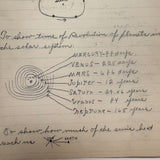 To show time of Revolution of planets in
the solar system.
MERCURY - 88 days
VENUS - 225 days
MARS - 686 days
Jupiter - 12 years
SATURN - 29.46 years
Uranus - 84 years
Neptune - 165 years
To show how much of the